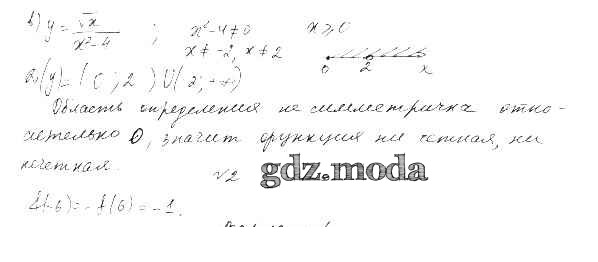 в) y = √x / x²-4 ; x²-4≠0 x ≥ 0
x ≠ -2, x ≠ 2
0 2 x
D(y) = (0; 2) U (2; +∞)
Область определения не симметрична отно-
сительно 0, значит функция ни четная, ни
нечетная.
√2 gdz.moda
f(-6) = -f(6) = -1.